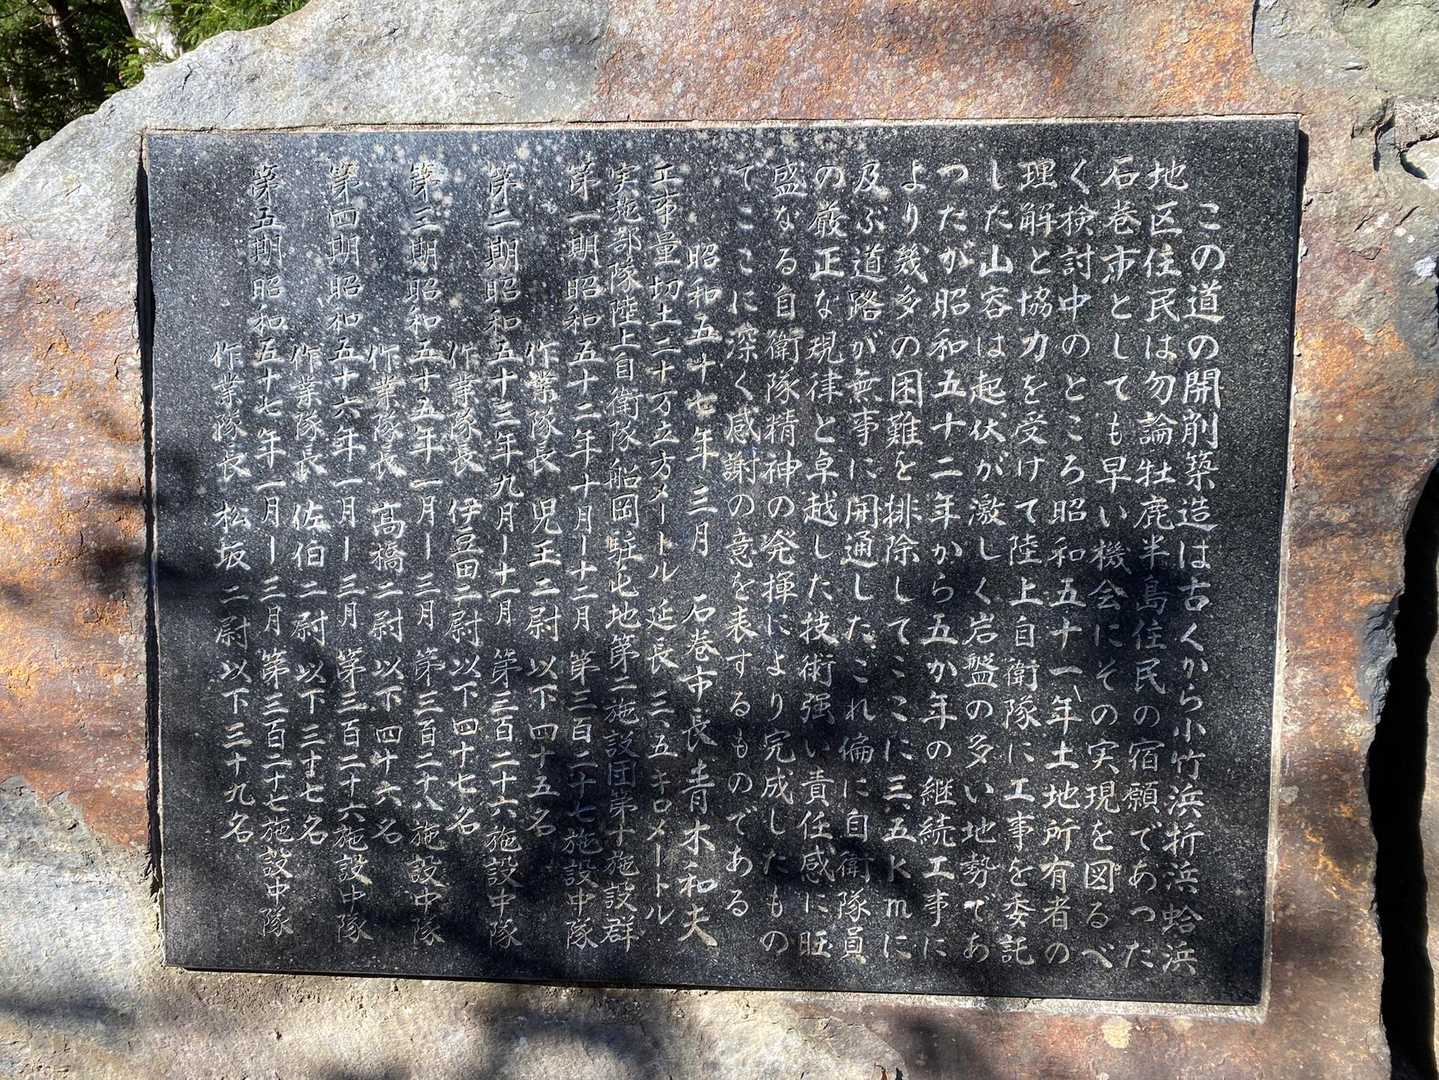 この道の開削築造は古くから小竹浜折浜蛤浜
地区住民は勿論牡鹿半島住民の宿願であつた
石巻市としても早い機会にその実現を図るべ
く検討中のところ昭和五十一年土地所有者の
理解と協力を受けて陸上自衛隊に工事を委託
した山容は起伏が激しく岩盤の多い地勢であ
つたが昭和五十二年から五か年の継続工事に
より幾多の困難を排除してここに三、五Kmに
及ぶ道路が無事に開通した これ偏に自衛隊員
の厳正な規律と卓越した技術強い責任感に旺
盛なる自衛隊精神の発揮により完成したもの
でここに深く感謝の意を表するものである
昭和五十七年三月 石巻市長青木和夫
工事量切土二十万立方メートル延長三、五キロメートル
実施部隊陸上自衛隊船岡駐屯地第二施設団第十施設群
第一期昭和五十二年十月ー十二月 第三百二十七施設中隊
作業隊長 児玉二尉 以下四十五名
第二期昭和五十三年九月ー十一月 第三百二十六施設中隊
作業隊長 伊豆田二尉 以下四十七名
第三期昭和五十五年一月ー三月 第三百二十八施設中隊
作業隊長 高橋二尉 以下四十六名
第四期昭和五十六年一月ー三月 第三百二十六施設中隊
作業隊長 佐伯二尉 以下三十七名
第五期昭和五十七年一月ー三月 第三百二十七施設中隊
作業隊長 松坂二尉 以下三十九名